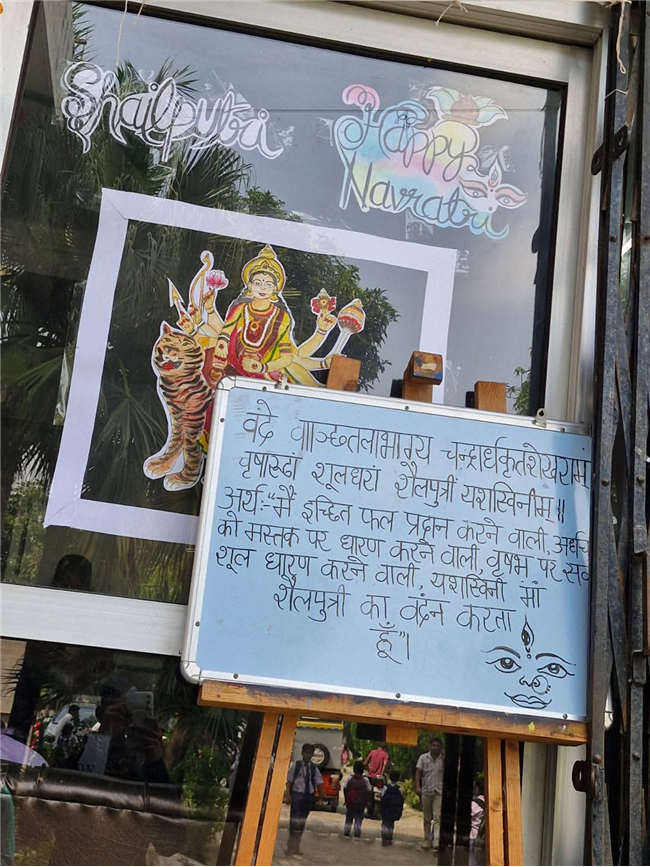 Shailputri
Happy
Navratri
वंदे वाञ्छितलाभाय चन्द्रार्धकृतशेखराम्
वृषारूढां शूलधरां शैलपुत्रीं यशस्विनीम्॥
अर्थ:-"मैं इच्छित फल प्रदान करने वाली, अर्धच
को मस्तक पर धारण करने वाली, वृषभ पर सव
शूल धारण करने वाली, यशस्विनी मां
शैलपुत्री का वंदन करता
हूँ"।